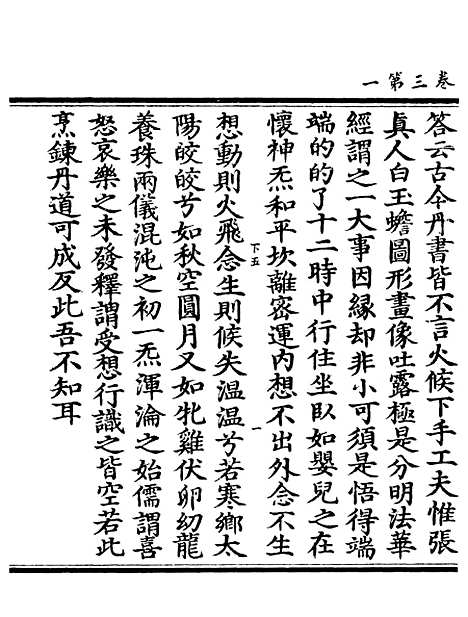 卷三第一
答云古今丹書皆不言火候下手工夫惟張
眞人白玉蟾圖形畫像吐露極是分明法華
經謂之一大事因緣却非小可須是悟得端
端的的了十二時中行住坐臥如嬰兒之在
懷神炁和平坎離密運內想不出外念不生
下五
一
想動則火飛念生則候失温温兮若寒鄉太
陽皎皎兮如秋空圓月又如牝雞伏卵幼龍
養珠兩儀混沌之初一炁渾淪之始儒謂喜
怒哀樂之未發釋謂受想行識之皆空若此
烹鍊丹道可成反此吾不知耳